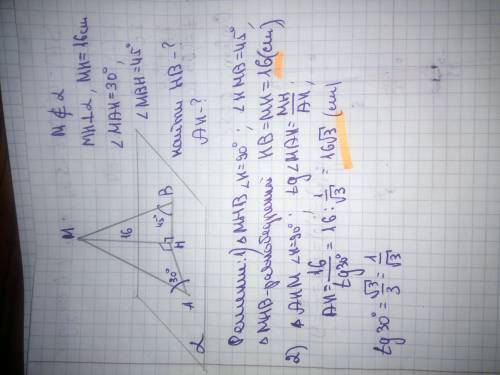 M ∉ α
MH⊥α, MH=16см
∠MAH=30°,
∠MBH=45°
Найти HB-?
AH-?
M
16
45°
B
H
30°
A
α
Решение: 1) △MHB ∠H=90°; ∠HMB=45°,
△MHB-равнобедренный HB=MH=16(см)
2) △AHM ∠H=90°; tg∠MAH=MH/AH;
AH=16/tg30°=16:1/√3=16√3 (см)
tg30°=√3/3=1/√3